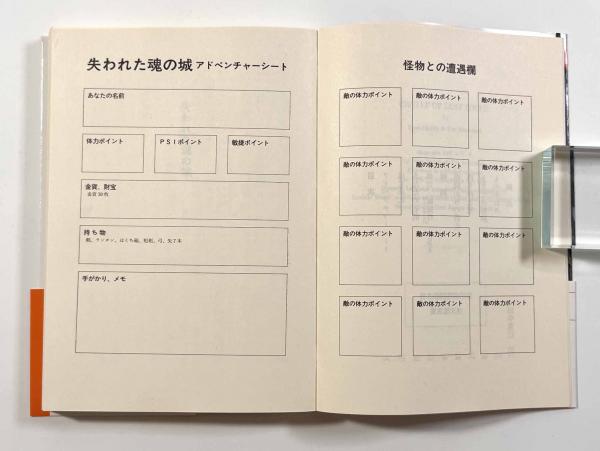 失われた魂の城 アドベンチャーシート
あなたの名前
体力ポイント
PSIポイント
敏捷ポイント
金貨、財宝
金貨30枚
持ち物
剣、ランタン、ほくち箱、短剣、弓、矢7本
手がかり、メモ
怪物との遭遇欄
敵の体力ポイント
敵の体力ポイント
敵の体力ポイント
敵の体力ポイント
敵の体力ポイント
敵の体力ポイント
敵の体力ポイント
敵の体力ポイント
敵の体力ポイント
敵の体力ポイント
敵の体力ポイント
敵の体力ポイント